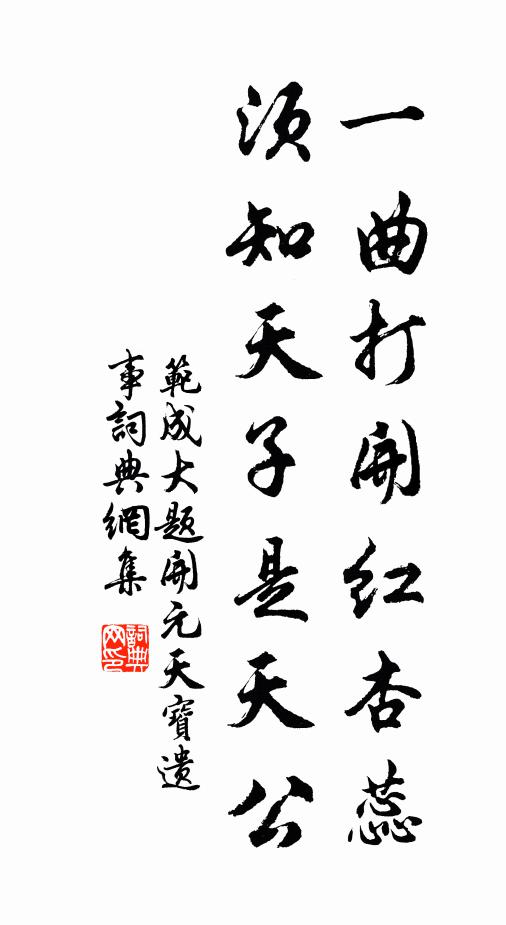 一曲打開红杏蕊
須知天子是天公
範成大题開元天寶遺
事詞典網集
詞典
网印